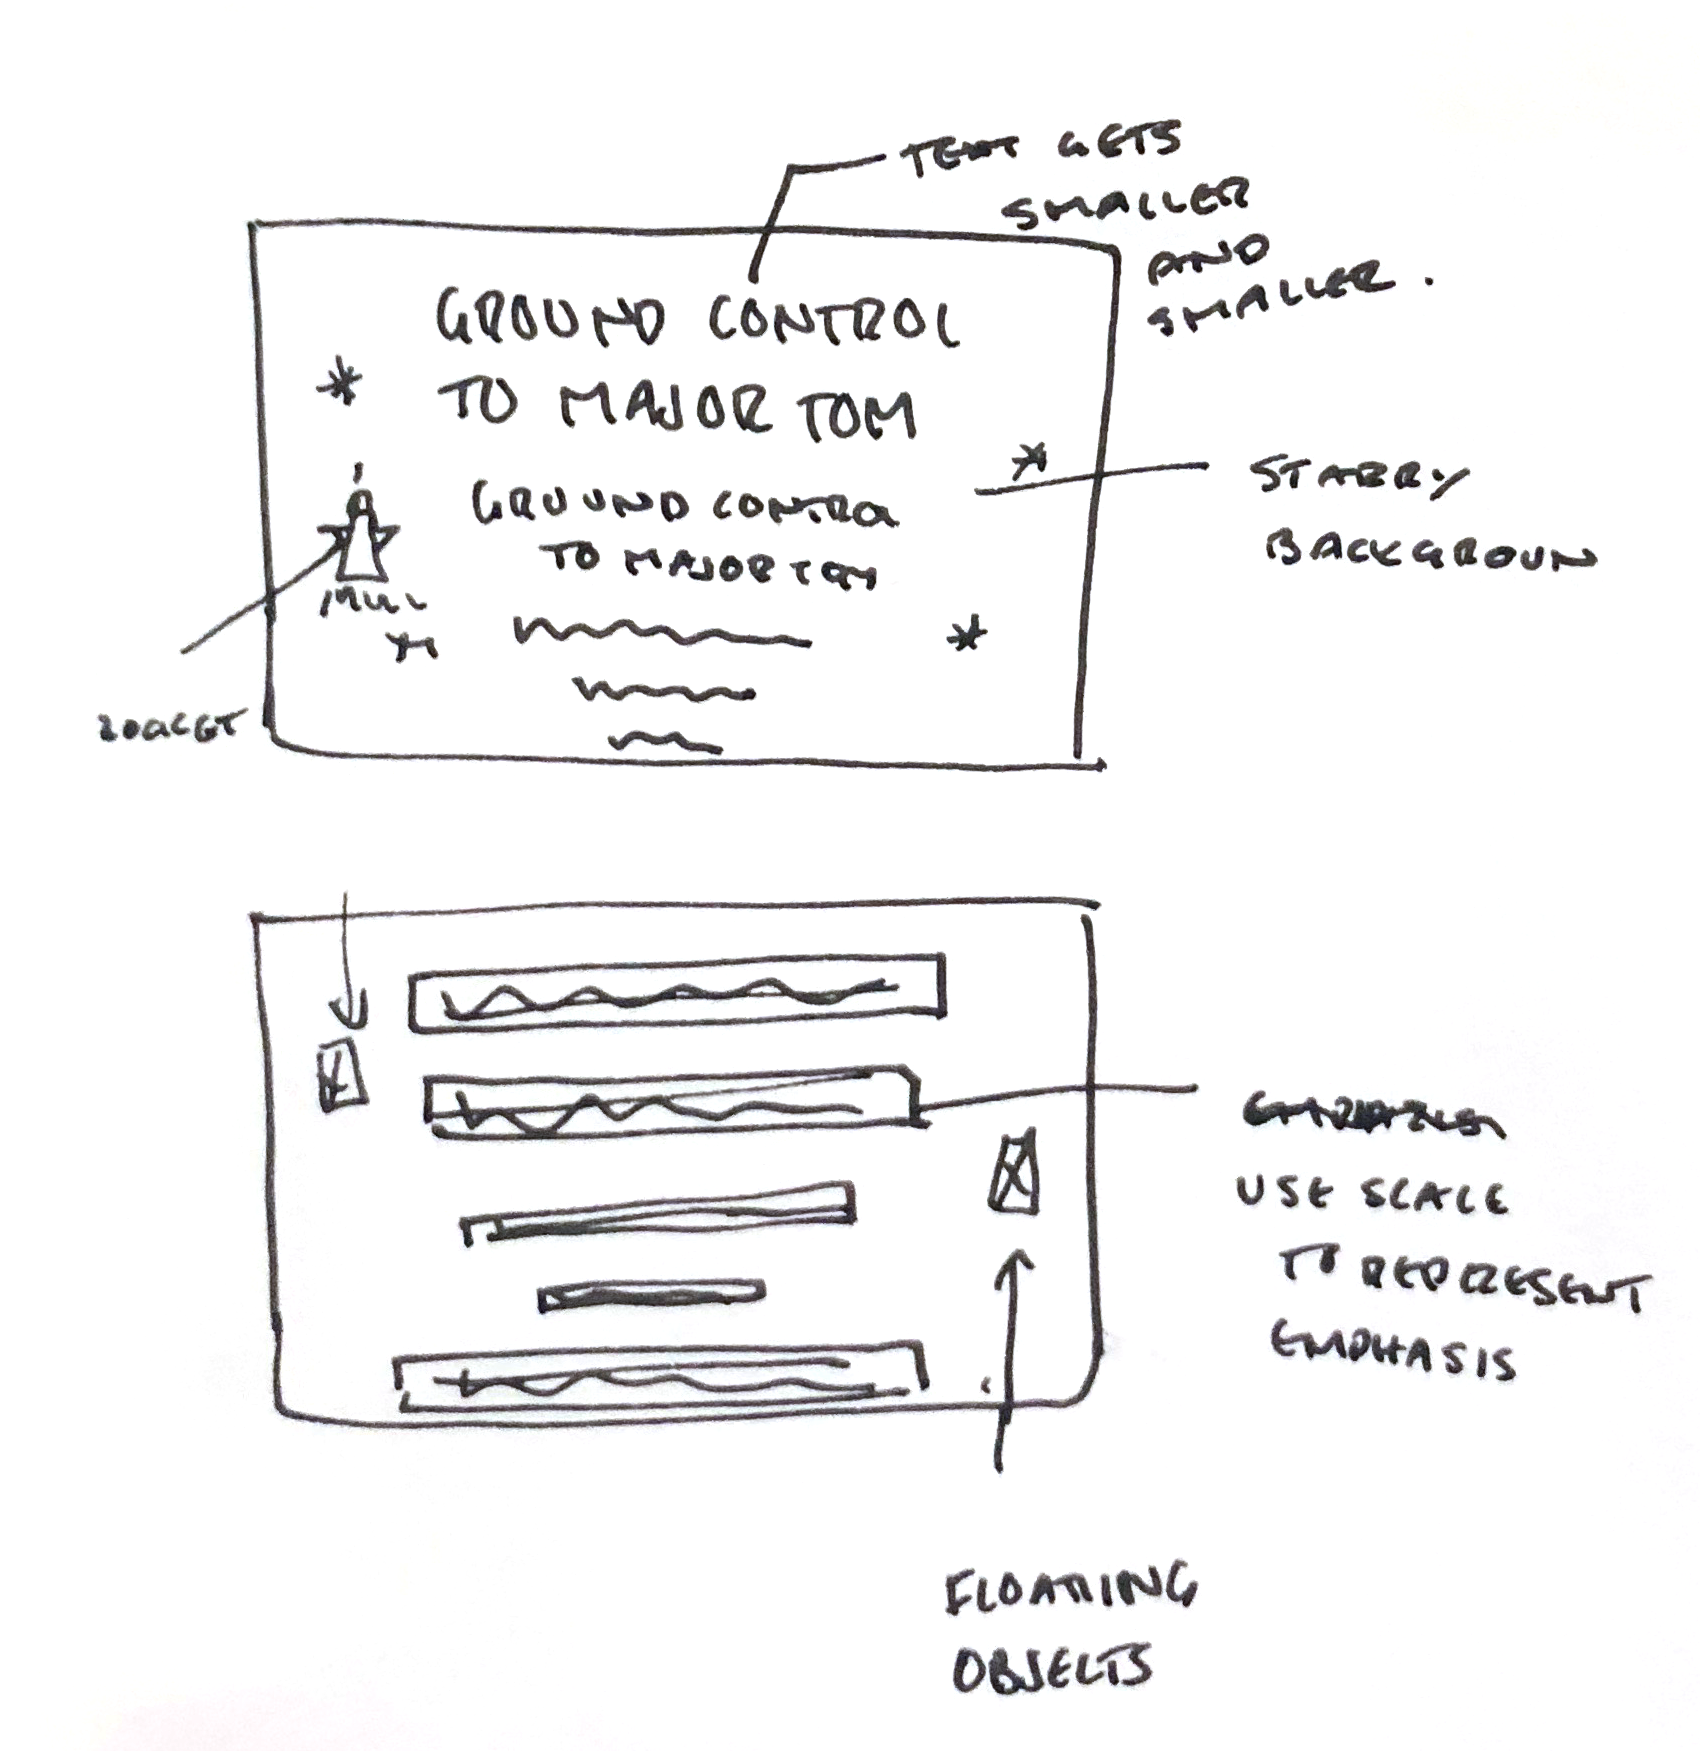 TEXT GETS
SMALLER
AND
SMALLER.
GROUND CONTROL
TO MAJOR TOM
GROUND CONTROL
TO MAJOR TOM
STARRY
BACKGROUN
ROCKET
USE SCALE
TO REPRESENT
EMPHASIS
FLOATING
OBJECTS